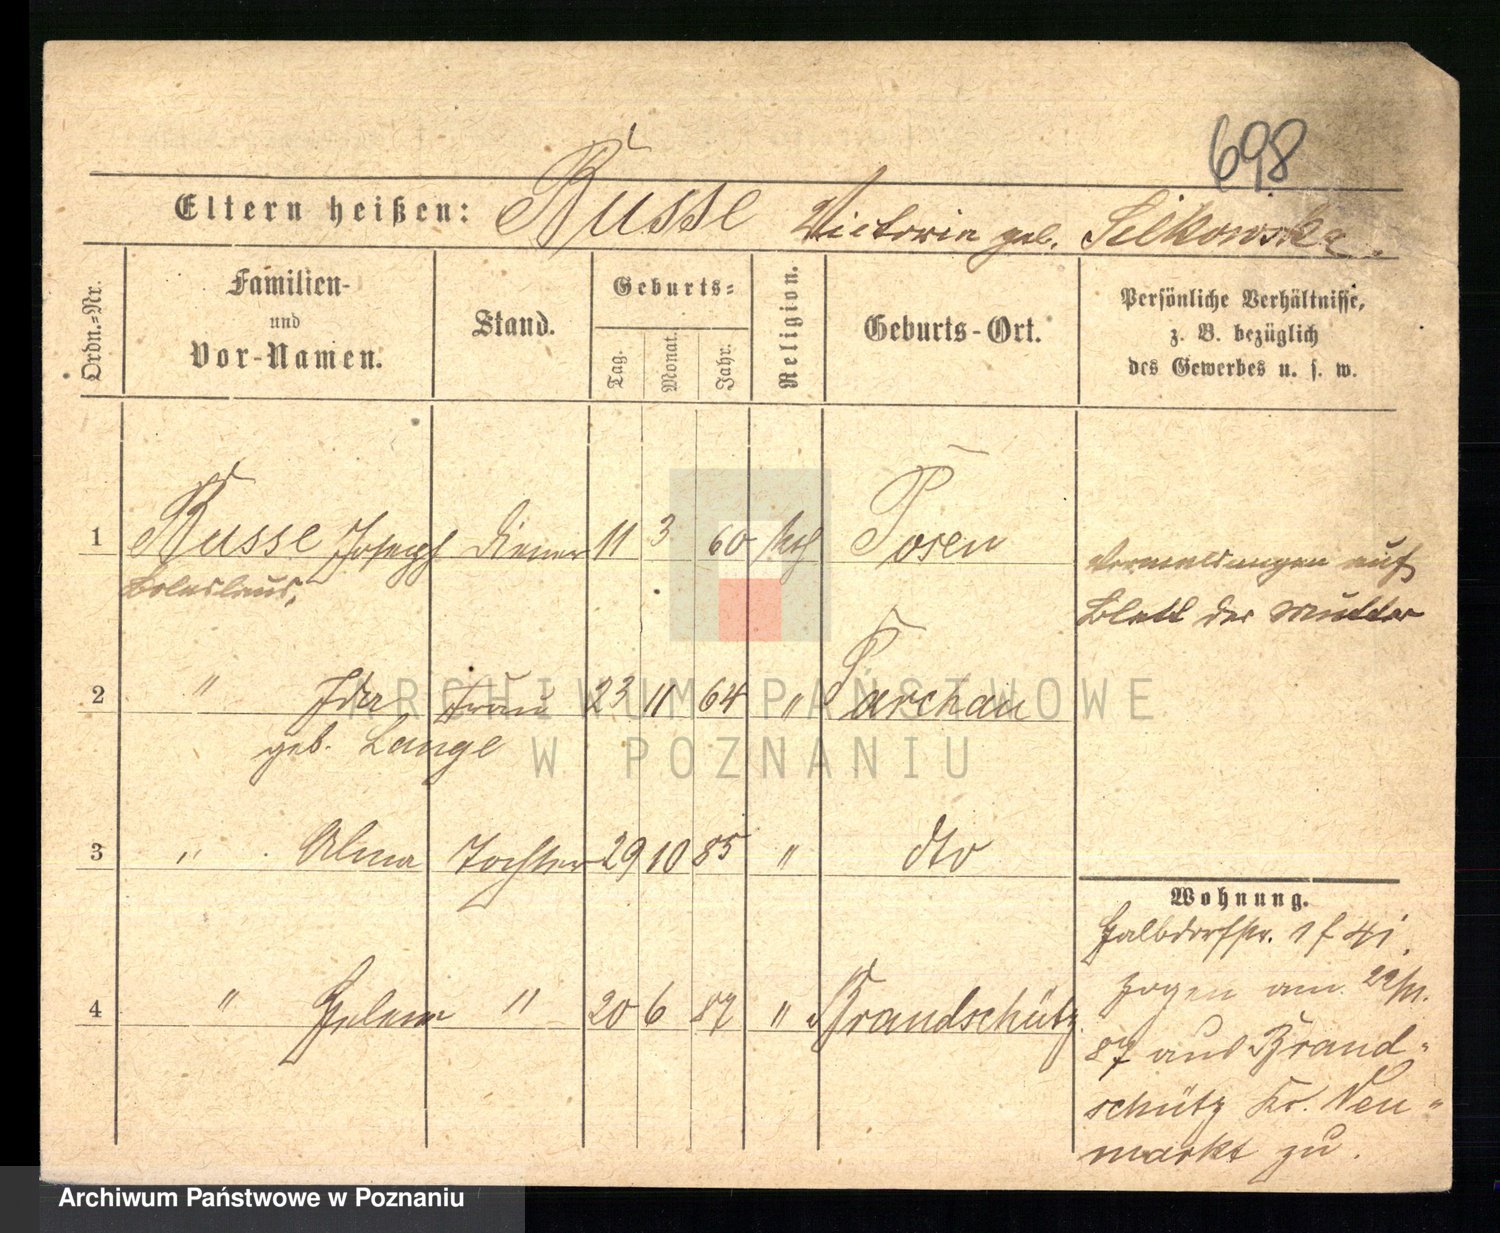 698
Eltern heißen: Busse Victoria geb. Silkowska.
Ordn.-Nr.
Familien-
und
Vor-Namen.
Stand.
Geburts-
Tag.
Monat.
Jahr.
Religion.
Geburts-Ort.
Persönliche Verhältnisse,
z. B. bezüglich
des Gewerbes u. s. w.
1 Busse Joseph Diener 11 3 60 kth Posen
Boleslaus,
Vermeldungen auf
Blatt der Mutter
2 " Ida Frau 23 11 64 " Parchau
geb. Lange
3 " Alma Tochter 29 10 85 " dto
4 " Helene " 20 6 87 " Brandschütz
Wohnung.
Halbdorfstr. 1
zogen am 22/11.
87 aus Brand-
schütz Kr. Neu-
markt zu.
ARCHIWUM PAŃSTWOWE
W POZNANIU
Archiwum Państwowe w Poznaniu